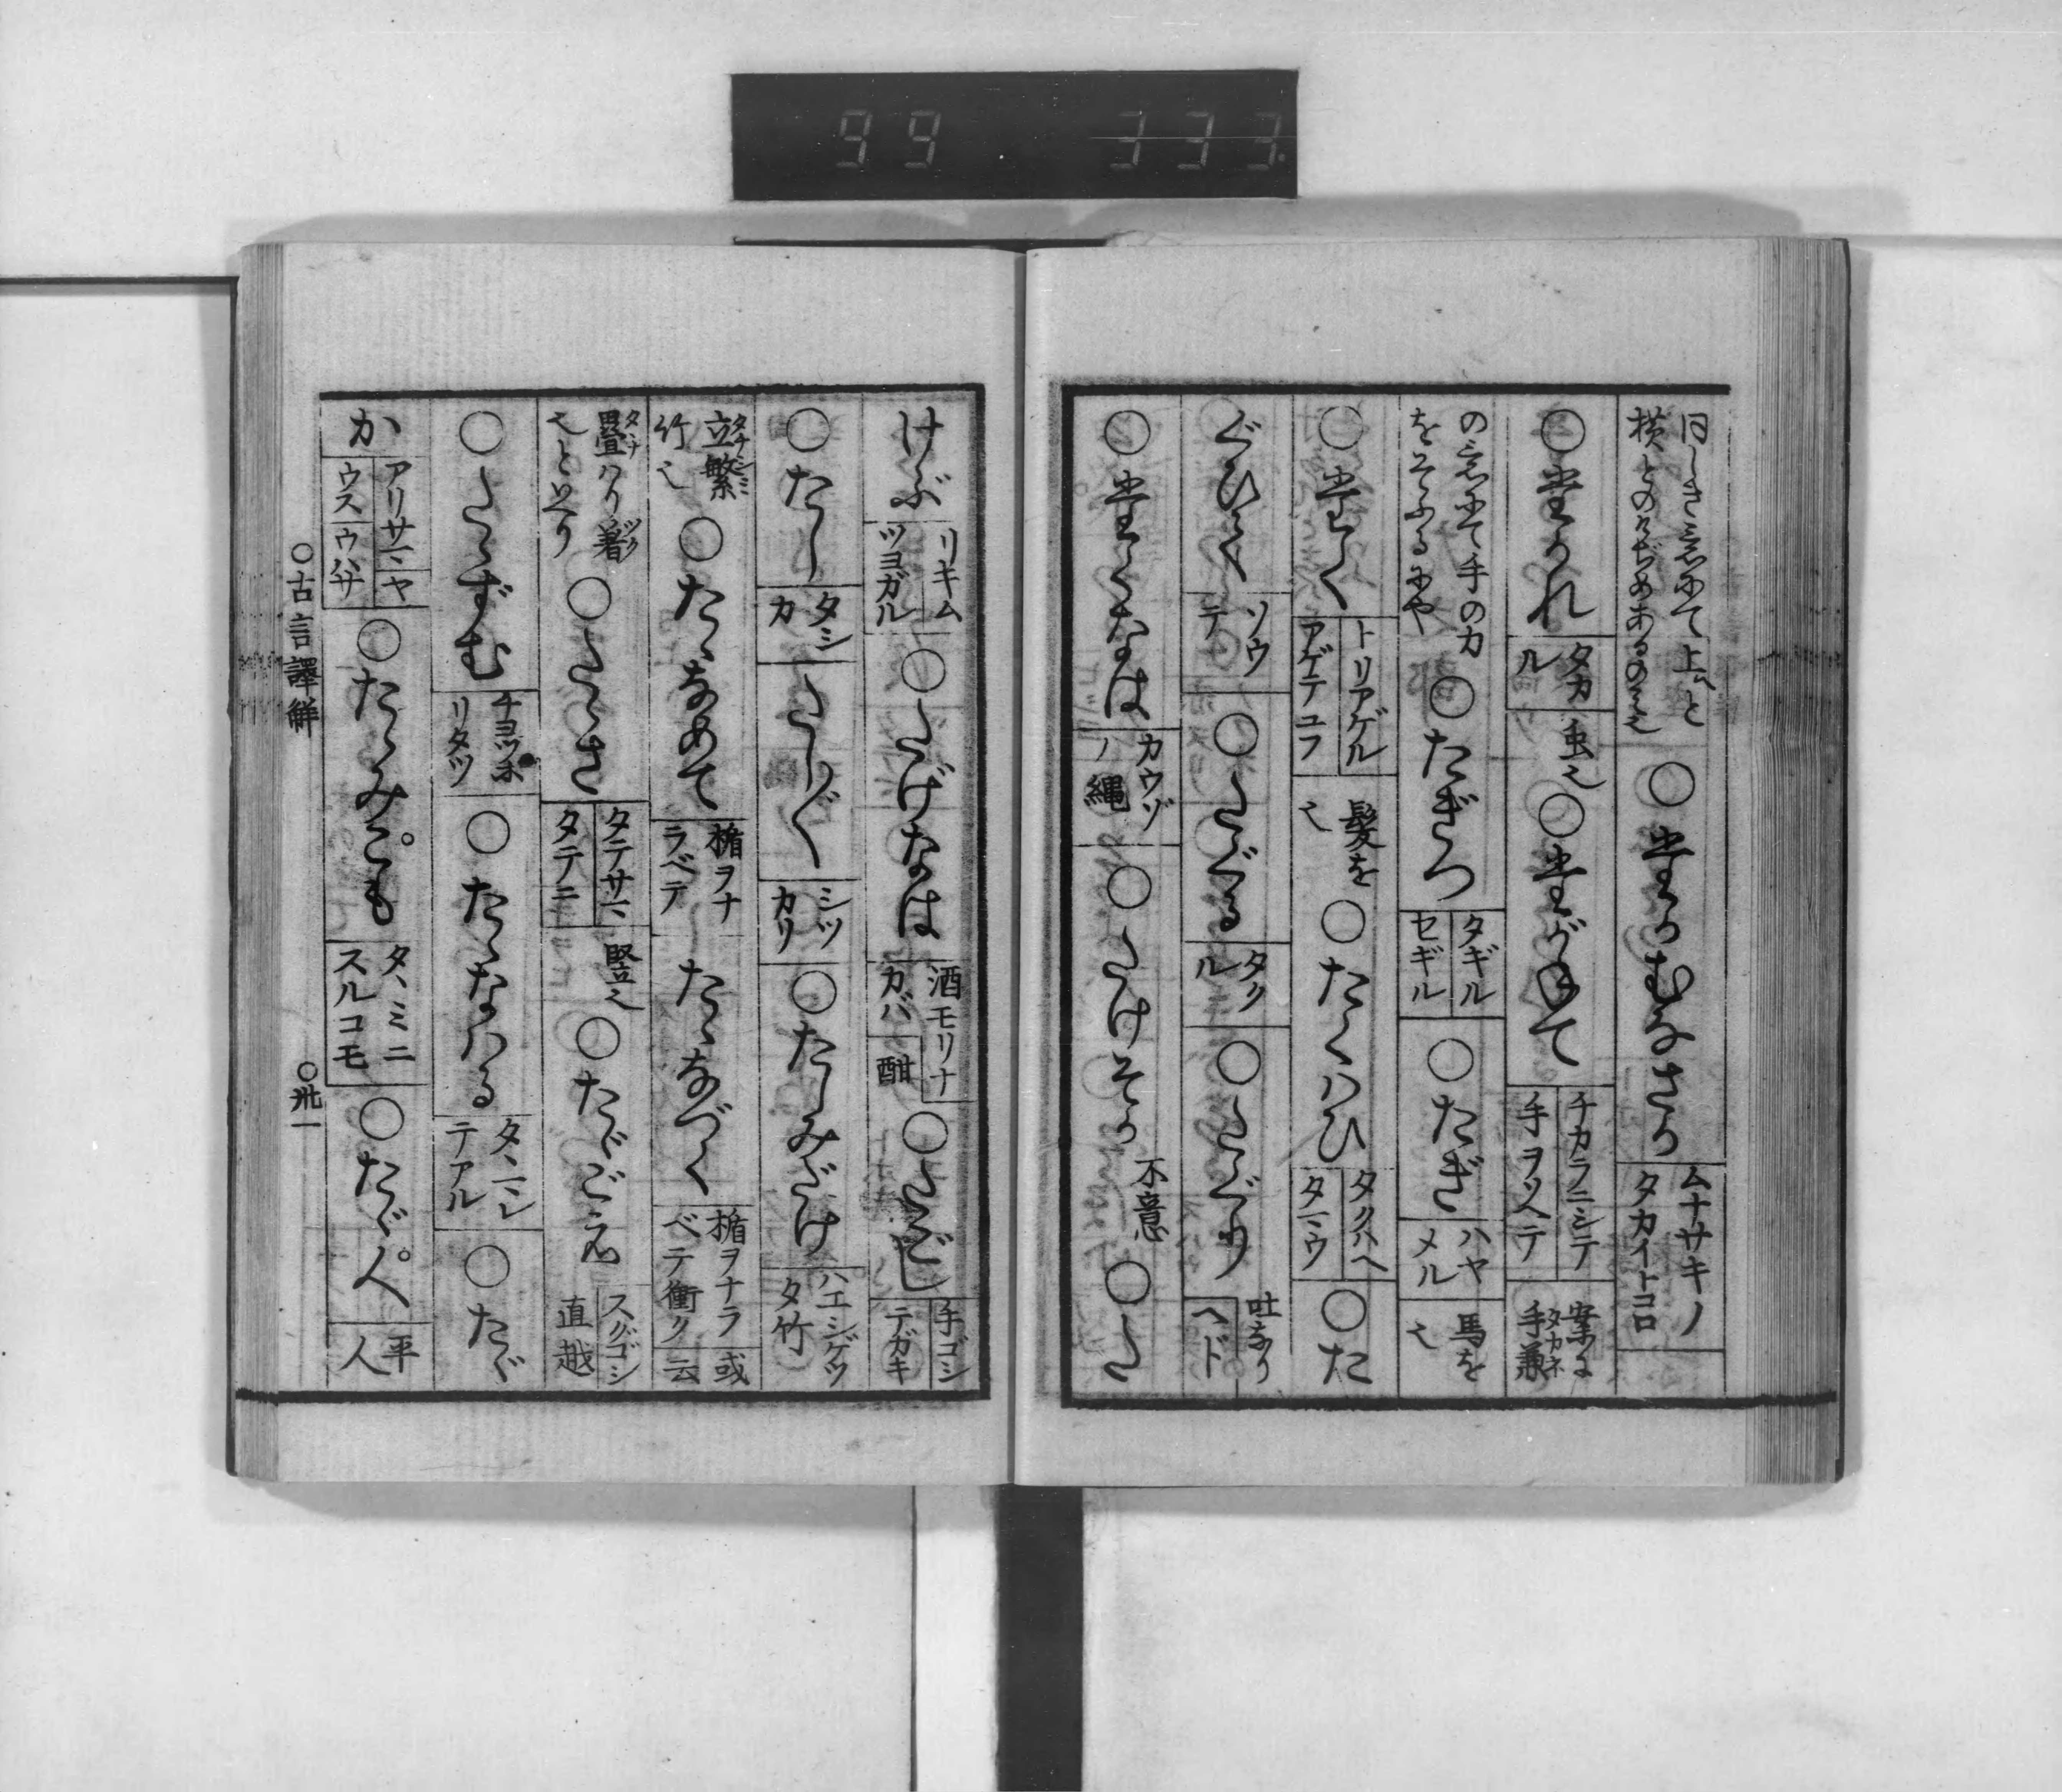 99 333
同しき意にて上へと
横とのけぢめあるのミ也
○たかむなさか
ムナサキノ
タカイトコロ
○たかれ
タカル
虫也
○たがねて
チカラニシテ
手ヲソヘテ
案に
手兼
タカネ
の意にて手の力
をそふるにや
○たぎつ
タギル
セギル
○たぎ
ハヤメル
馬を也
○たく
トリアゲル
アゲテユフ
髪を也
○たくハひ
タクハヘ
タマウ
○た
ぐひて
ソウテ
○たぐる
タクル
○たぐり
吐なり
ヘド
○たくなは
カウゾノ縄
○たけそか
不意
○た
けぶ
リキム
ツヨガル
○たげなは
酒モリナカバ
酣
○たごし
手ゴシ
テガキ
○たし
タシカ
たしく
シツカリ
○たしみだけ
ハエシゲツタ竹
立繁
タチシミ
竹也
○たゝなめて
楯ヲナラベテ
たゝなづく
楯ヲナラベテ衝ク
或云
畳ハり著
タヽナ ツク
也といへり
○たゝさ
タテサマ
タテニ
竪也
○たゞごえ
スグゴシ
直越
○たゝずむ
チヨツホリタツ
○たゝなハる
タヽンシテアル
○たゞ
か
アリサマ
ヤウス
ウハサ
○たゝみこも
タヽミニスルコモ
○たゞ人
平人
○古言譯解
○卅一